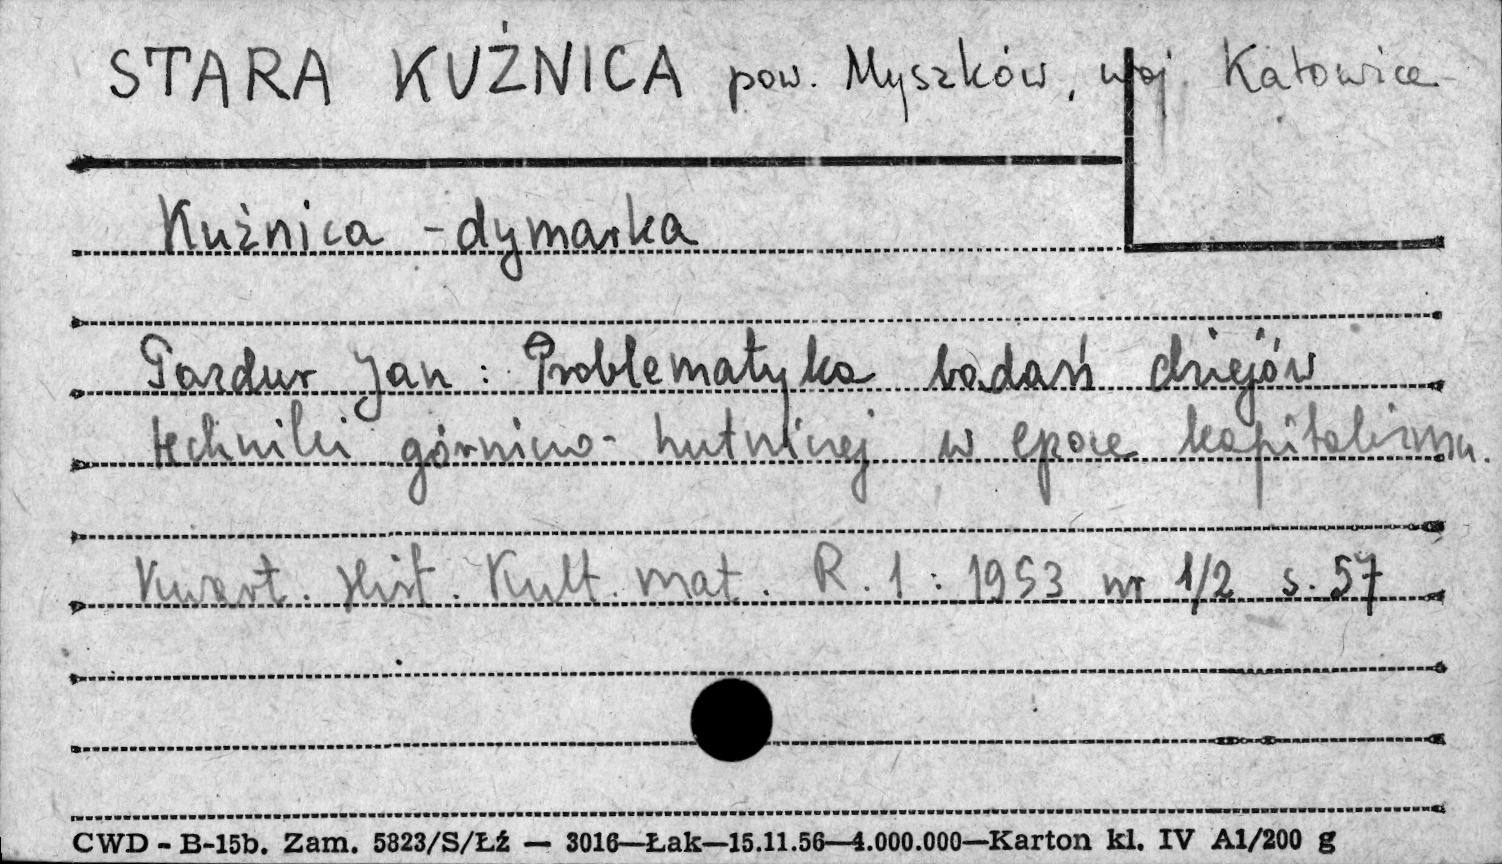 STARA KUŹNICA pow. Myszków, woj. Katowice
Kuźnica - dymarka
Pazdur Jan: Problematyka badań dziejów
techniki górniczo-hutniczej w epoce kapitalizmu.
Kwart. Hist. Kult. mat. R. 1: 1953 nr 1/2 s. 57
CWD - B-15b. Zam. 5823/S/Łź — 3016—Łak—15.11.56—4.000.000—Karton kl. IV A1/200 g